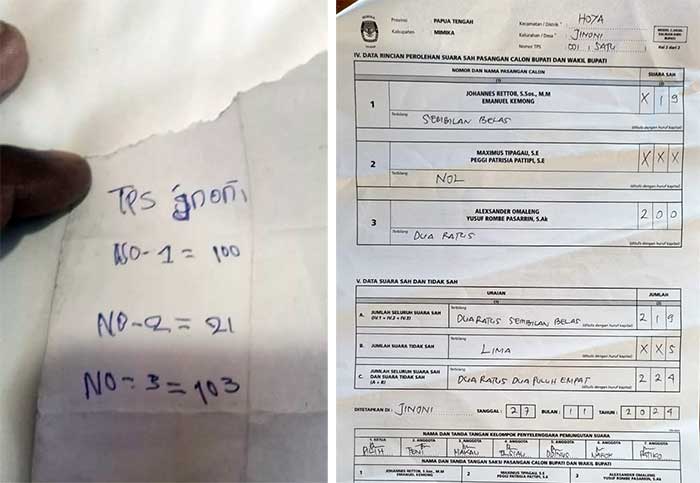 TPS Jinoni
NO-1 = 100
NO-2 = 21
NO-3 = 103
Provinsi : PAPUA TENGAH
Kabupaten : MIMIKA
Kecamatan / Distrik : HOYA
Kelurahan / Desa : JINONI
Nomor TPS : 001 / SATU
Hal 2 dari 2
IV. DATA RINCIAN PEROLEHAN SUARA SAH PASANGAN CALON BUPATI DAN WAKIL BUPATI
NOMOR DAN NAMA PASANGAN CALON SUARA SAH
(1) (2)
1 JOHANNES RETTOB, S.Sos., M.M X 1 9
EMANUEL KEMONG
Terbilang
SEMBILAN BELAS
(ditulis dengan huruf kapital)
2 MAXIMUS TIPAGAU, S.E X X X
PEGGI PATRISIA PATTIPI, S.E
Terbilang
NOL
(ditulis dengan huruf kapital)
3 ALEXSANDER OMALENG 2 0 0
YUSUF ROMBE PASARRIN, S.Ak
Terbilang
DUA RATUS
(ditulis dengan huruf kapital)
V. DATA SUARA SAH DAN TIDAK SAH
URAIAN JUMLAH
(1) (2)
A. JUMLAH SELURUH SUARA SAH
(IV.1 + IV.2 + IV.3)
Terbilang
DUA RATUS SEMBILAN BELAS 2 1 9
(ditulis dengan huruf kapital)
B. JUMLAH SUARA TIDAK SAH
Terbilang
LIMA X X 5
(ditulis dengan huruf kapital)
C. JUMLAH SELURUH SUARA SAH
DAN SUARA TIDAK SAH
(A + B)
Terbilang
DUA RATUS DUA PULUH EMPAT 2 2 4
(ditulis dengan huruf kapital)
DITETAPKAN DI : JINONI TANGGAL : 2 7 BULAN : 1 1 TAHUN : 2 0 2 4
NAMA DAN TANDA TANGAN KELOMPOK PENYELENGGARA PEMUNGUTAN SUARA
1. KETUA 2. ANGGOTA 3. ANGGOTA 4. ANGGOTA 5. ANGGOTA 6. ANGGOTA 7. ANGGOTA
NAMA DAN TANDA TANGAN SAKSI PASANGAN CALON BUPATI DAN WAKIL BUPATI
1 JOHANNES RETTOB, S.Sos., M.M
EMANUEL KEMONG
2 MAXIMUS TIPAGAU, S.E
3 ALEXSANDER OMALENG